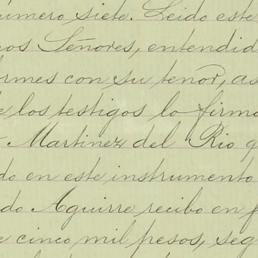 número siete. Leido este
nos Señores, entendid
ormes con su tenor, as
e los testigos lo firma
Martinez del Rio q
do en este instrumento
do Aguirre recibo en
e cinco mil pesos, seg